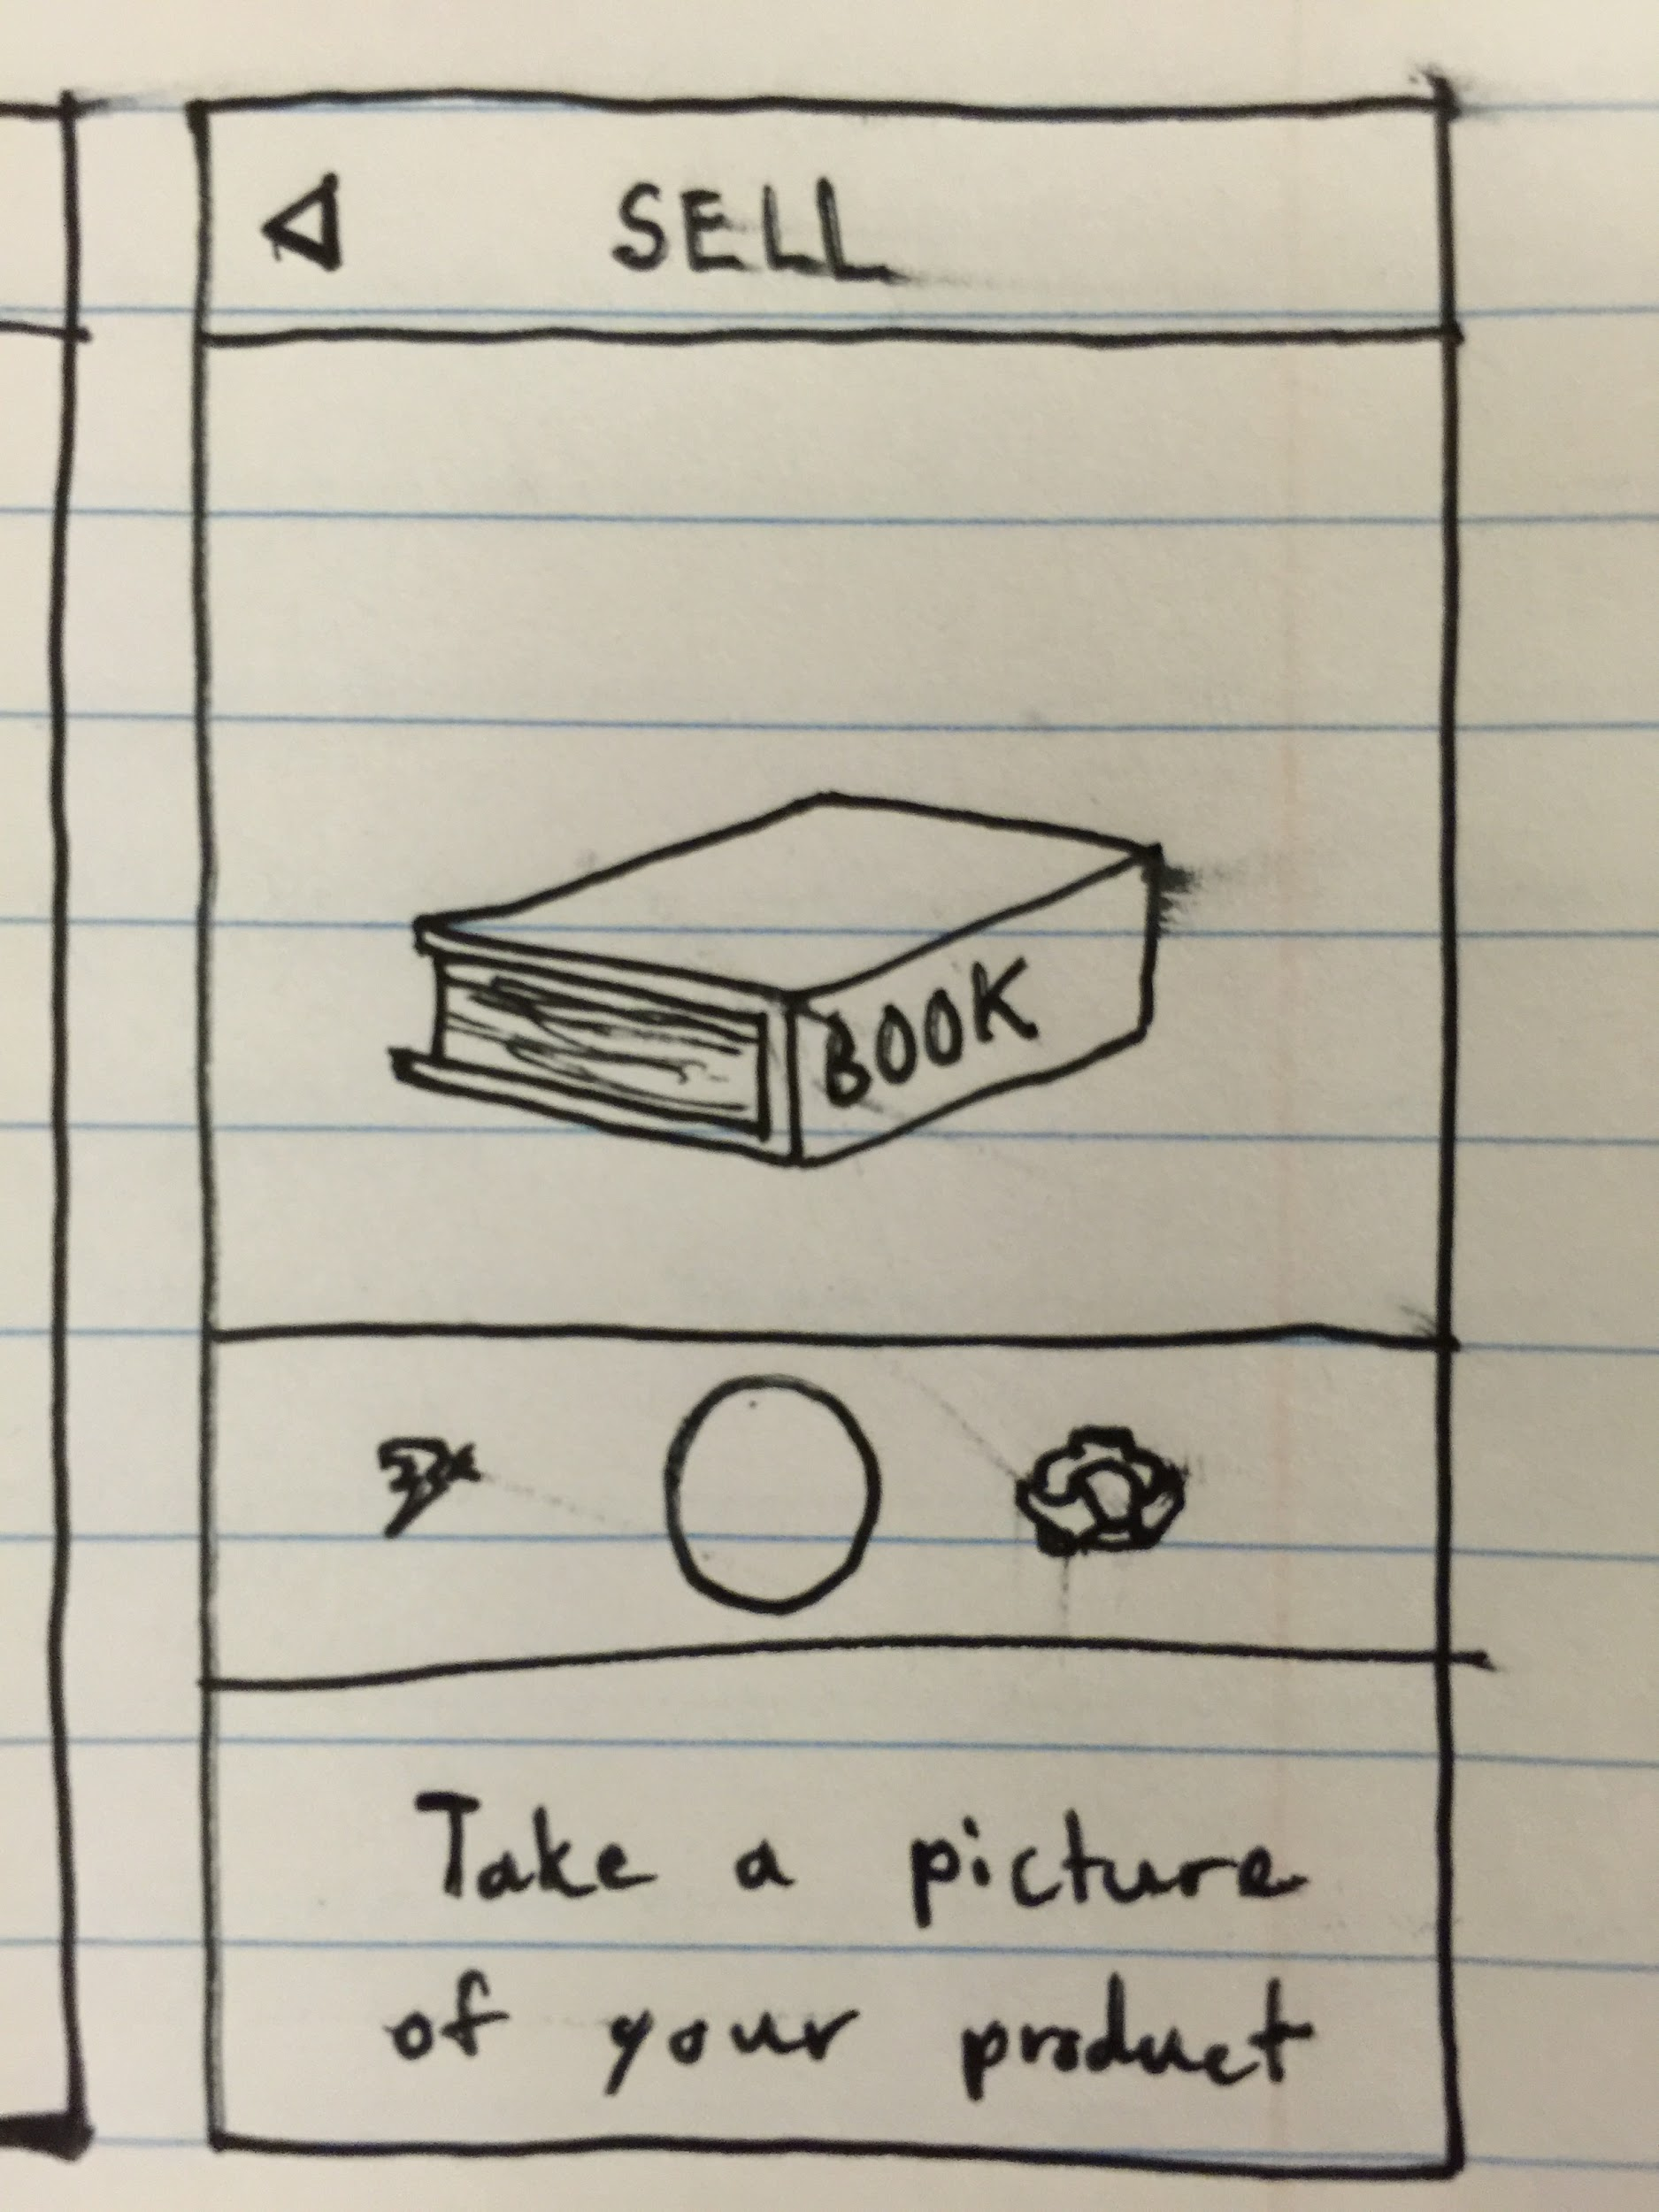 SELL
BOOK
Take a picture
of your product